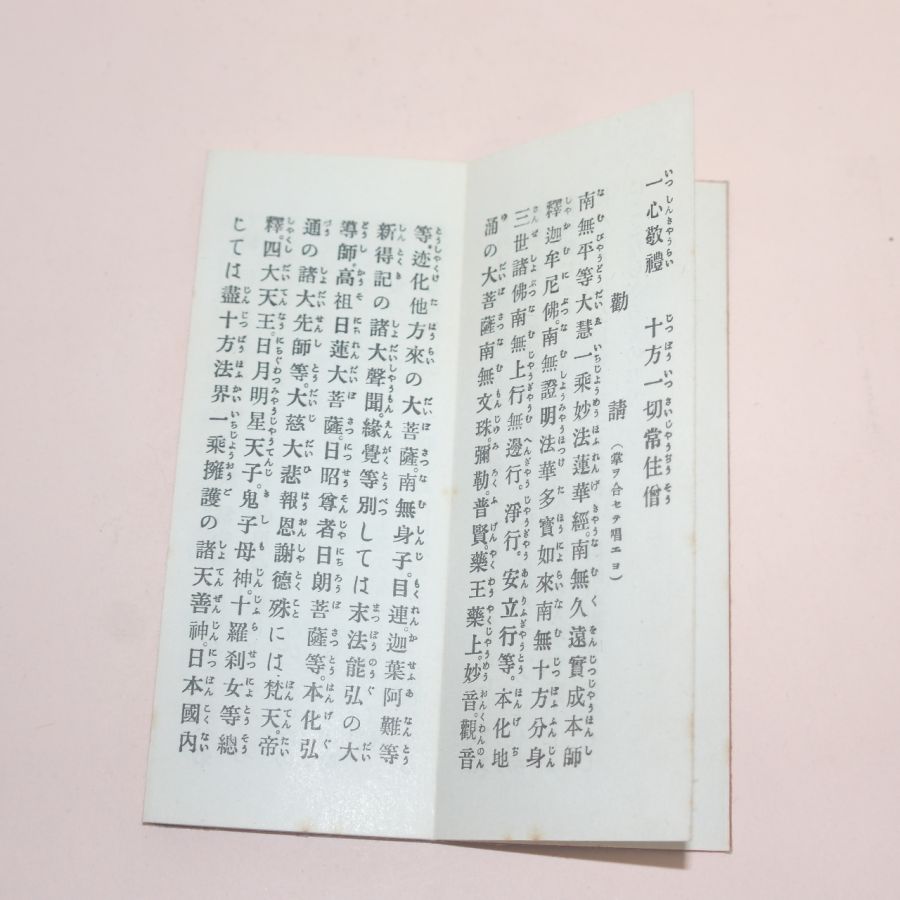 一心敬禮　十方一切常住僧
勸請（掌ヲ合セテ唱エヨ）
南無平等大慧一乘妙法蓮華經。南無久遠實成本師
釋迦牟尼佛。南無證明法華多寶如來南無十方分身
三世諸佛南無上行無邊行。淨行。安立行等。本化地
涌の大菩薩南無文珠。彌勒。普賢。藥王藥上。妙音。觀音
等。迹化他方來の大菩薩。南無身子。目連。迦葉阿難等
新得記の諸大聲聞。緣覺等別しては末法能弘の大
導師。高祖日蓮大菩薩。日昭尊者日朗菩薩等。本化弘
通の諸大先師等。大慈大悲報恩謝德殊には梵天。帝
釋。四大天王。日月明星天子。鬼子母神。十羅刹女等總
じては盡十方法界一乘擁護の諸天善神。日本國內